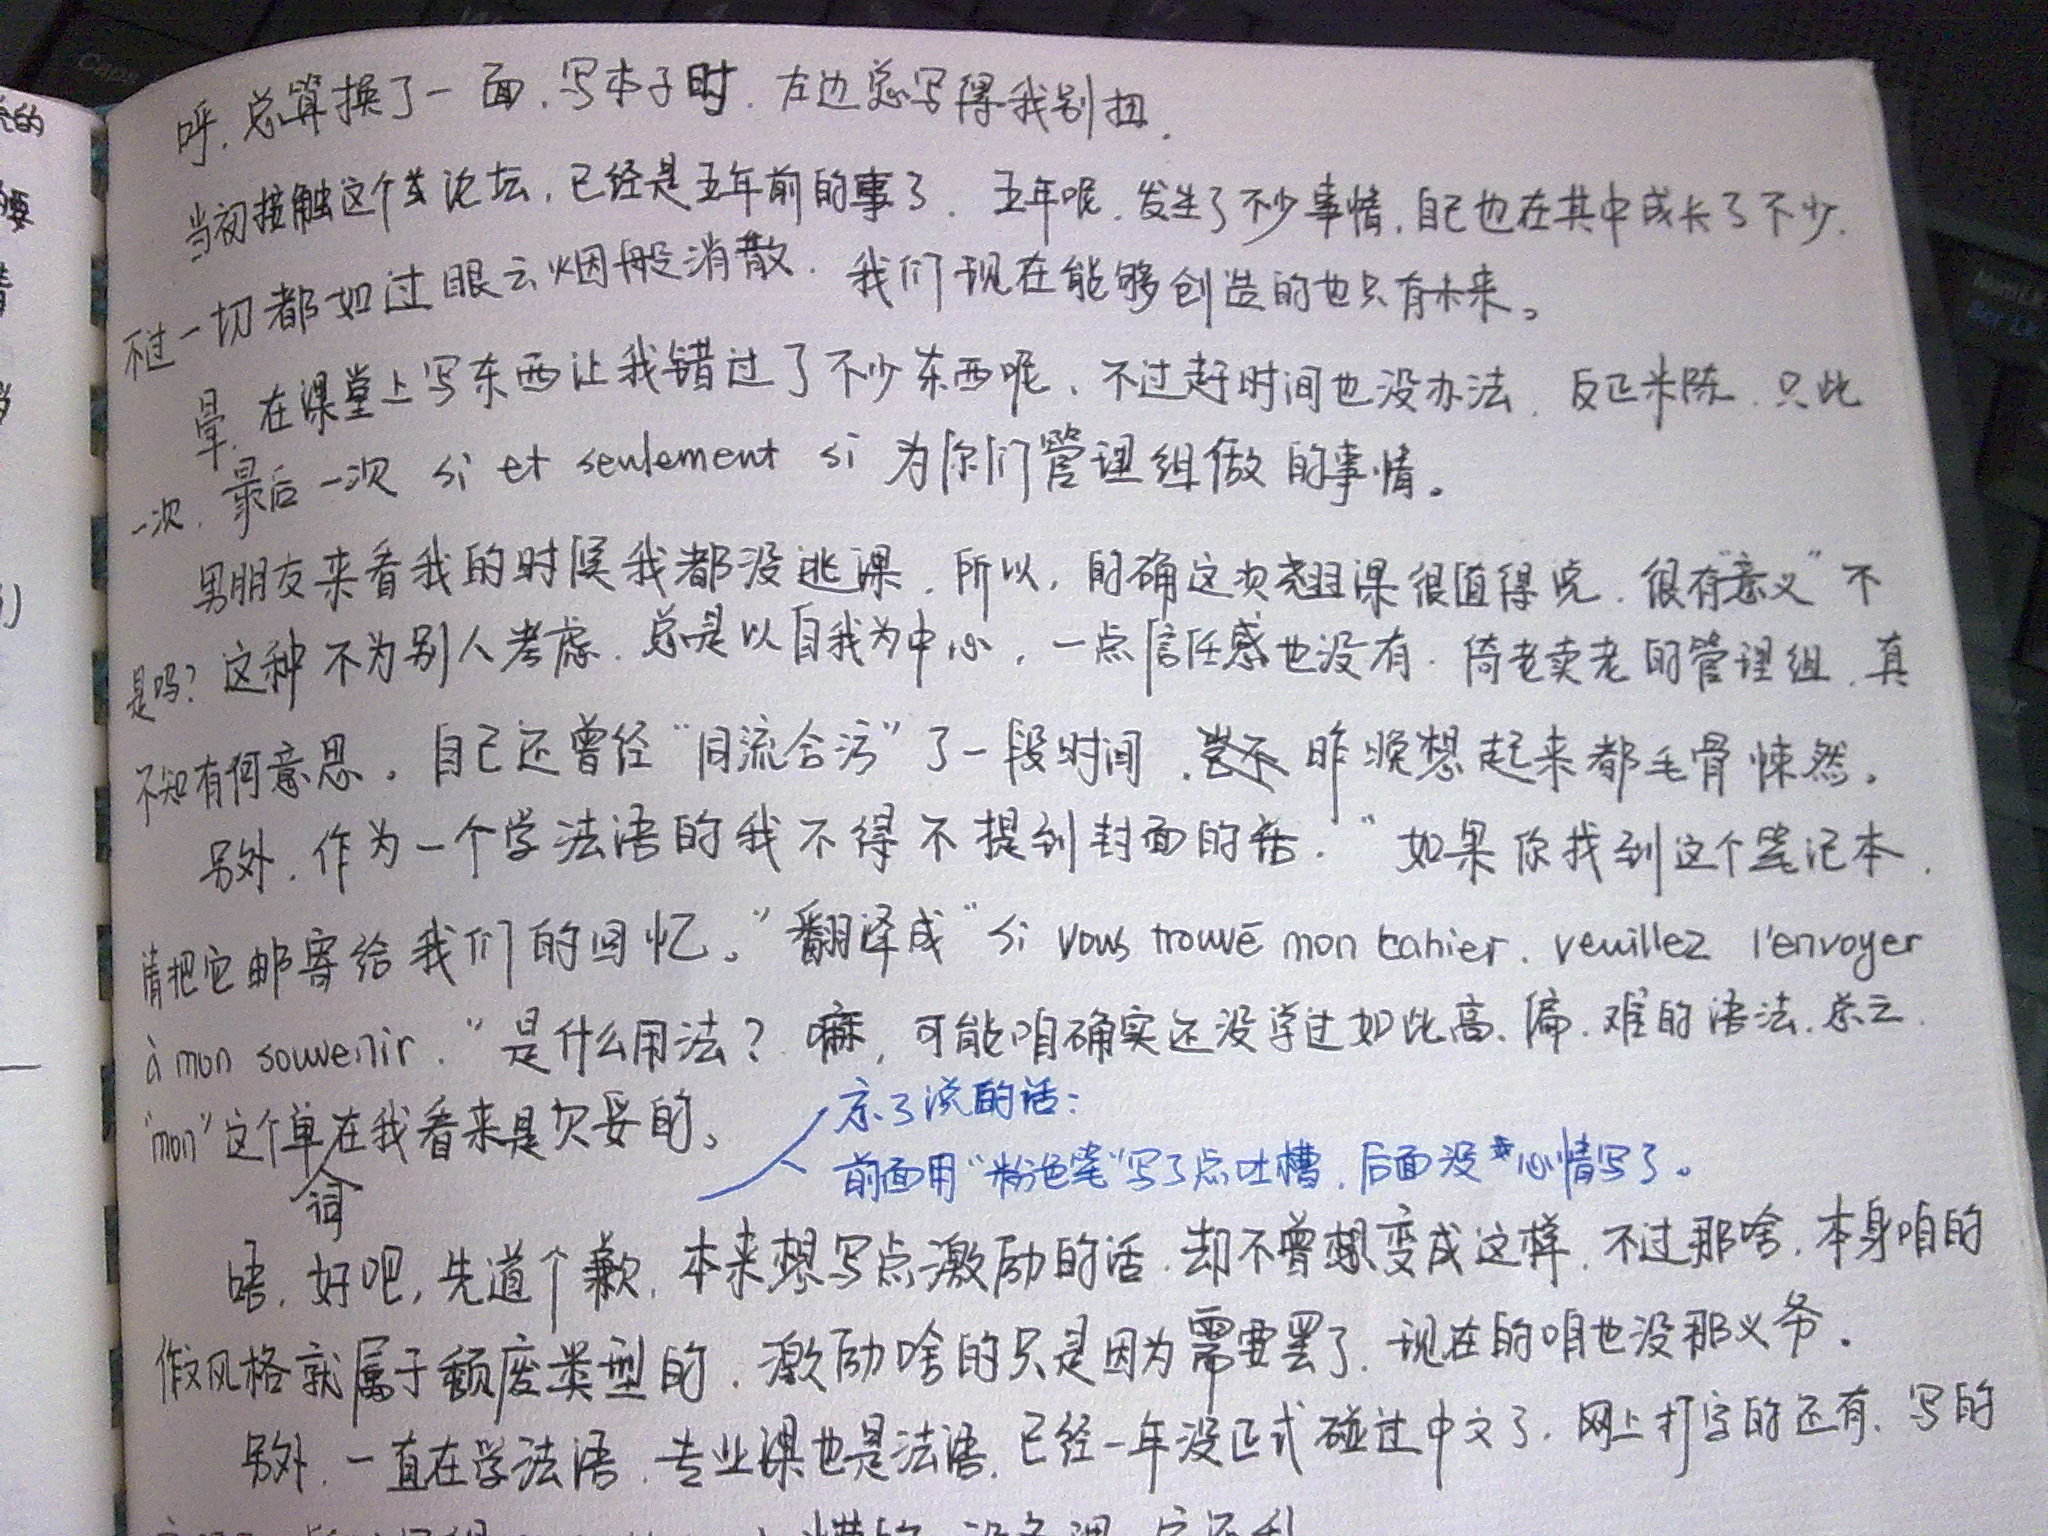 呼，总算换了一面，写本子时，左边总写得我别扭，
当初接触这个论坛，已经是五年前的事了，五年呢，发生了不少事情，自己也在其中成长了不少，
不过一切都如过眼云烟般消散，我们现在能够创造的也只有未来。
晕，在课堂上写东西让我错过了不少东西呢，不过赶时间也没办法，反正米陈，只此
一次，最后一次 si et seulement si 为你们管理组做的事情。
男朋友来看我的时候我都没逃课，所以，的确这次翘课很值得说，很有“意义”不
是吗？这种不为别人考虑，总是以自我为中心，一点信任感也没有，倚老卖老的管理组，真
不知有何意思。自己还曾经“同流合污”了一段时间，昨晚想起来都毛骨悚然。
另外，作为一个学法语的我不得不提到封面的话，“如果你找到这个笔记本，
请把它邮寄给我们的回忆。”翻译成“si vous trouvé mon cahier, veuillez l'envoyer
à mon souvenir.”是什么用法？嘛，可能咱确实还没学过如此高、偏、难的语法，总之，
“mon”这个单词在我看来是欠妥的。
示了流的话：
前面用“粉色笔”写了点吐槽，后面没心情写了。
唔，好吧，先道个歉，本来想写点激励的话，却不曾想变成这样，不过那啥，本身咱的
作风格就属于颓废类型的，激励啥的只是因为需要罢了，现在的咱也没那义务。
另外，一直在学法语，专业课也是法语，已经一年没正式碰过中文了，网上打字的还有，写的